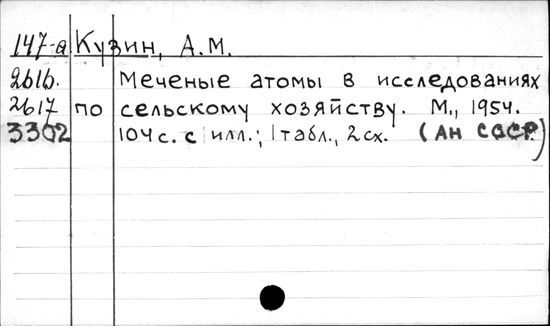 147-а Кузин, А.М.
2616. Меченые атомы в исследованиях
2617 по сельскому хозяйству. М., 1954.
3302 104 с. с илл.; 1 табл., 2 сх. (АН СССР)